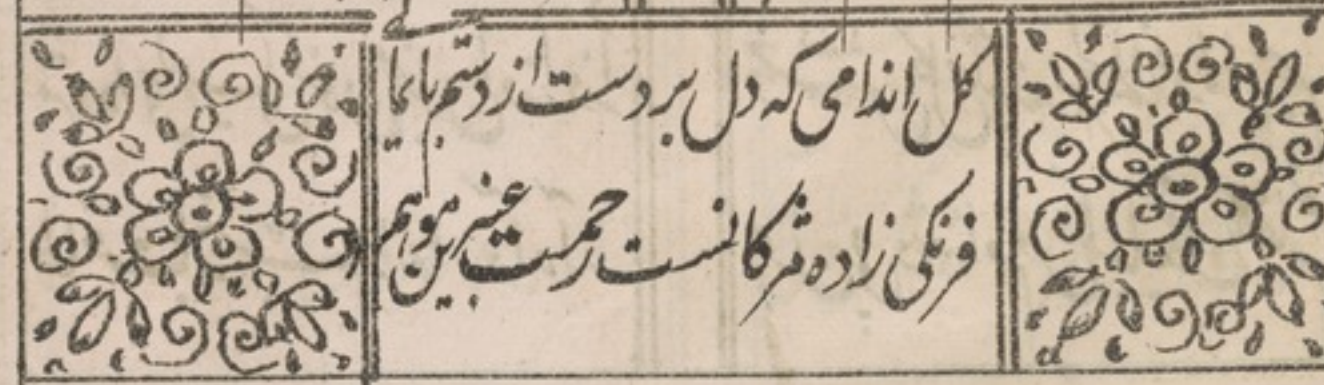 گل اندامی که دل بردست از دستم بایما
فرنگی زاده مژگانست رحمت عنبرین مو هم